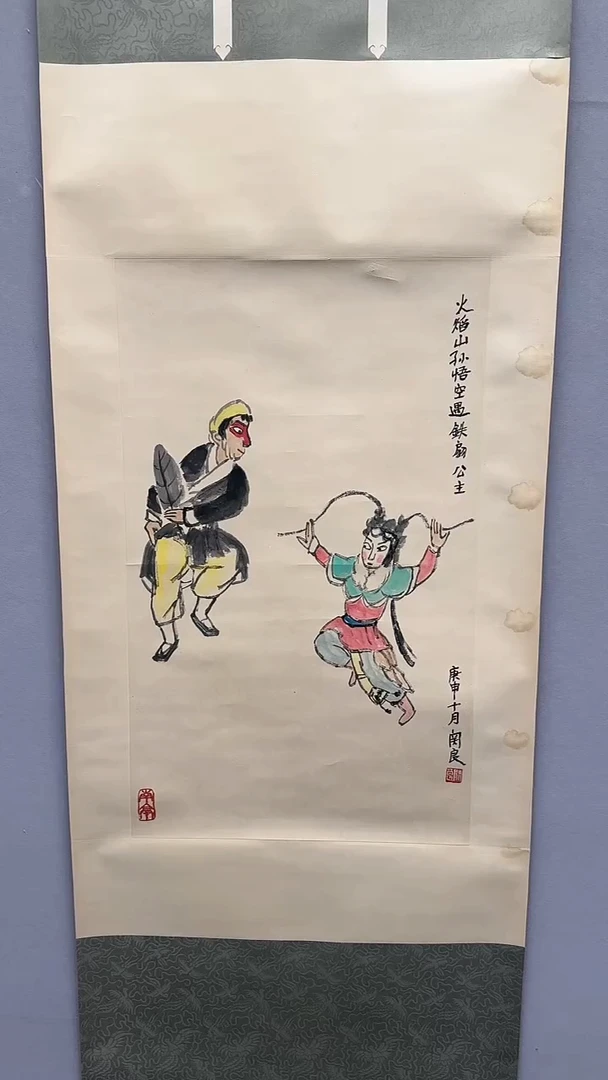 火焰山孙悟空遇鉄扇公主
庚申十月关良